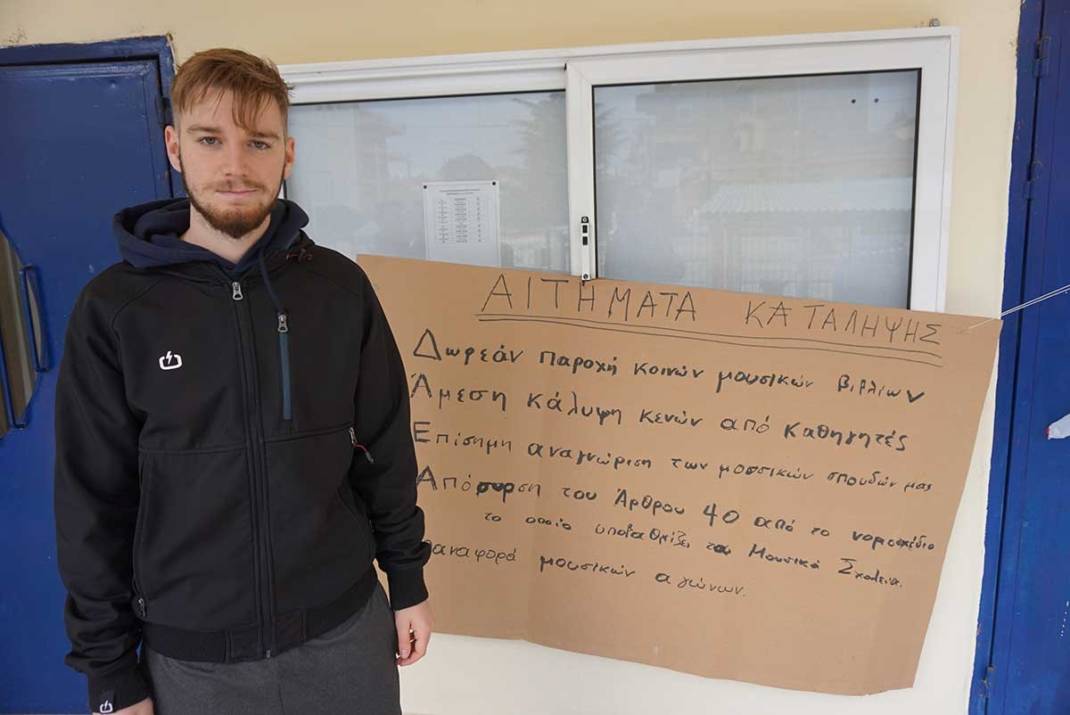 ΑΙΤΗΜΑΤΑ ΚΑΤΑΛΗΨΗΣ
Δωρεάν παροχή κοινών μουσικών βιβλίων
Άμεση κάλυψη κενών από καθηγητές
Επίσημη αναγνώριση των μουσικών σπουδών μας
Απόσυρση του Άρθρου 40 από το νομοσχέδιο
το οποίο υποβαθμίζει τα Μουσικά Σχολεία.
αναφορά μουσικών αγώνων.